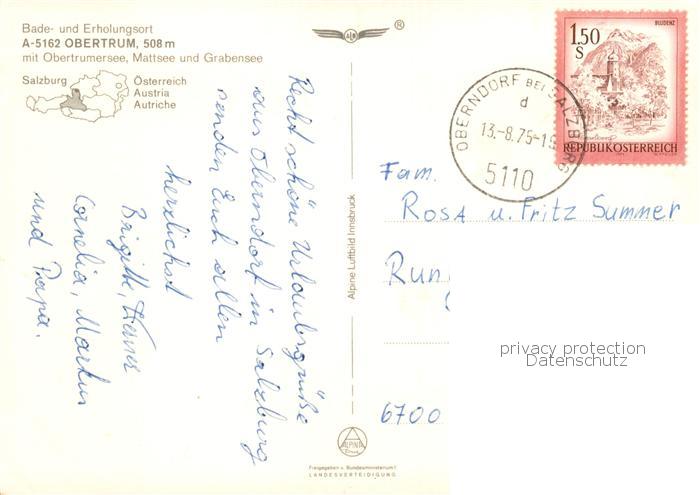 Bade- und Erholungsort
A-5162 OBERTRUM, 508 m
mit Obertrumersee, Mattsee und Grabensee
Salzburg
Österreich
Austria
Autriche
®
Recht schöne Urlaubsgrüße
aus Oberndorf in Salzburg
senden Euch allen
herzlichst
Brigitte,
Cornelia, Markus
und Papa.
Alpine Luftbild Innsbruck
ALPINE
Freigegeben v. Bundesministerium f.
LANDESVERTEIDIGUNG
BLUDENZ
1.50
S
REPUBLIK ÖSTERREICH
OBERNDORF BEI SALZBURG
d
13.-8.75-15
5110
Fam.
Rosa u. Fritz Summer
Run
6700
privacy protection
Datenschutz